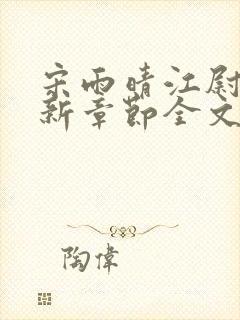 宋雨晴江尉
新章節全文
陶偉